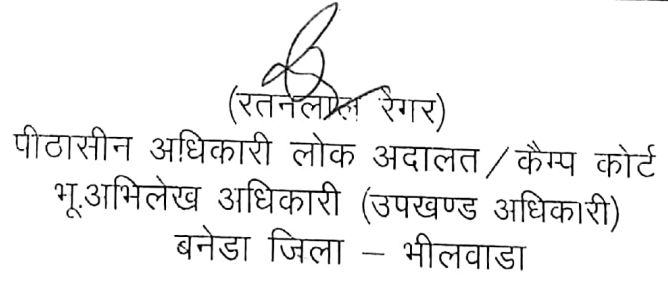 (रतनलाल रैगर)
पीठासीन अधिकारी लोक अदालत / कैम्प कोर्ट
भू.अभिलेख अधिकारी (उपखण्ड अधिकारी)
बनेडा जिला – भीलवाडा